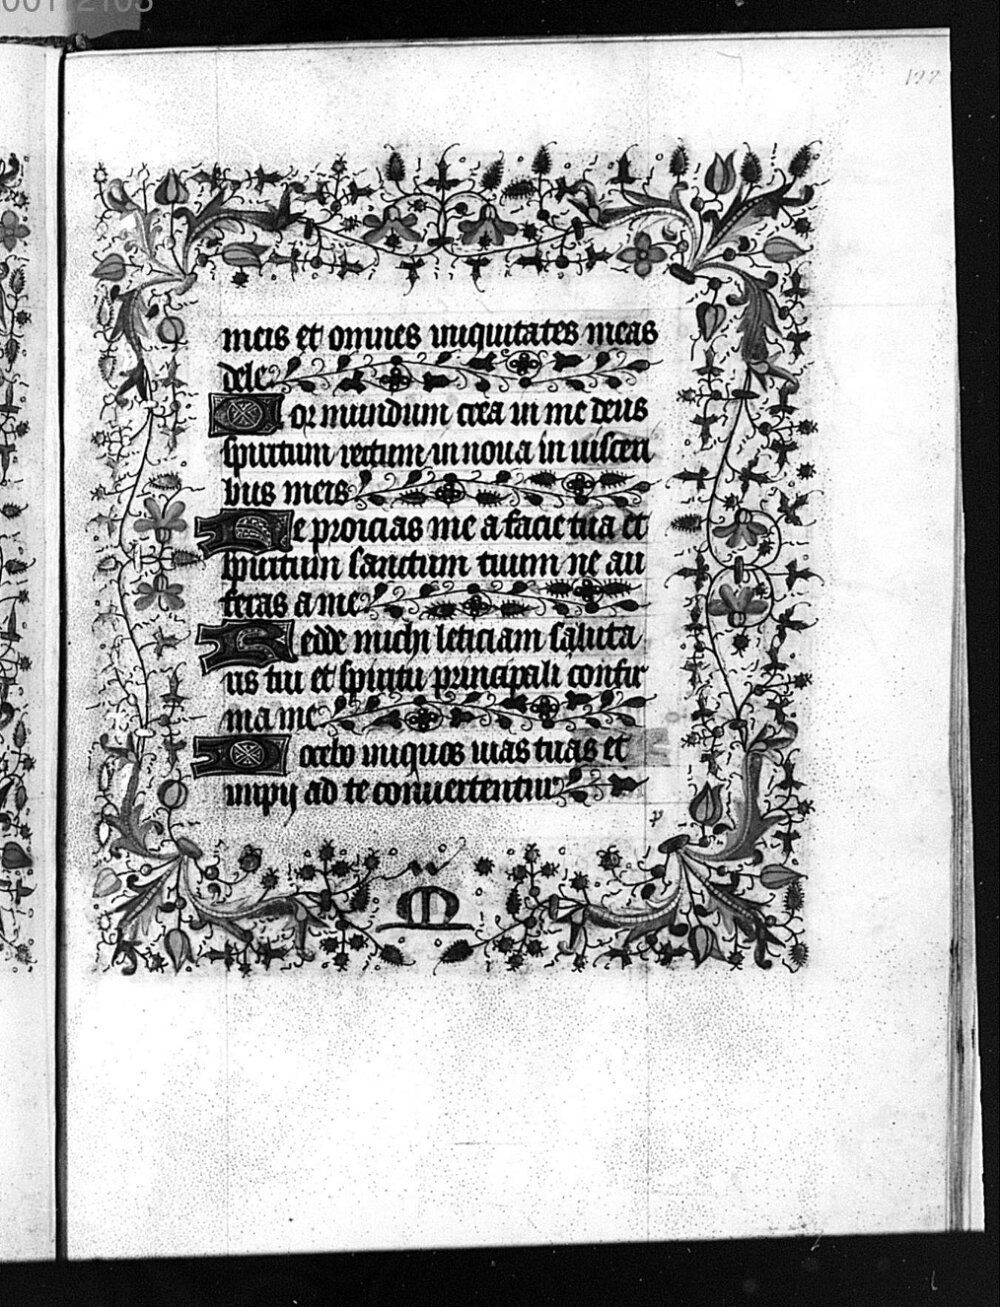 00112103
122
meis et omnes iniquitates meas
dele
Cor mundum crea in me deus
spiritum rectum innova in visceri
bus meis
Ne proicias me a facie tua et
spiritum sanctum tuum ne au
feras a me
Redde michi leticiam saluta
ris tui et spiritu principali confir
ma me
Docebo iniquos vias tuas et
impii ad te convertentur
p
M